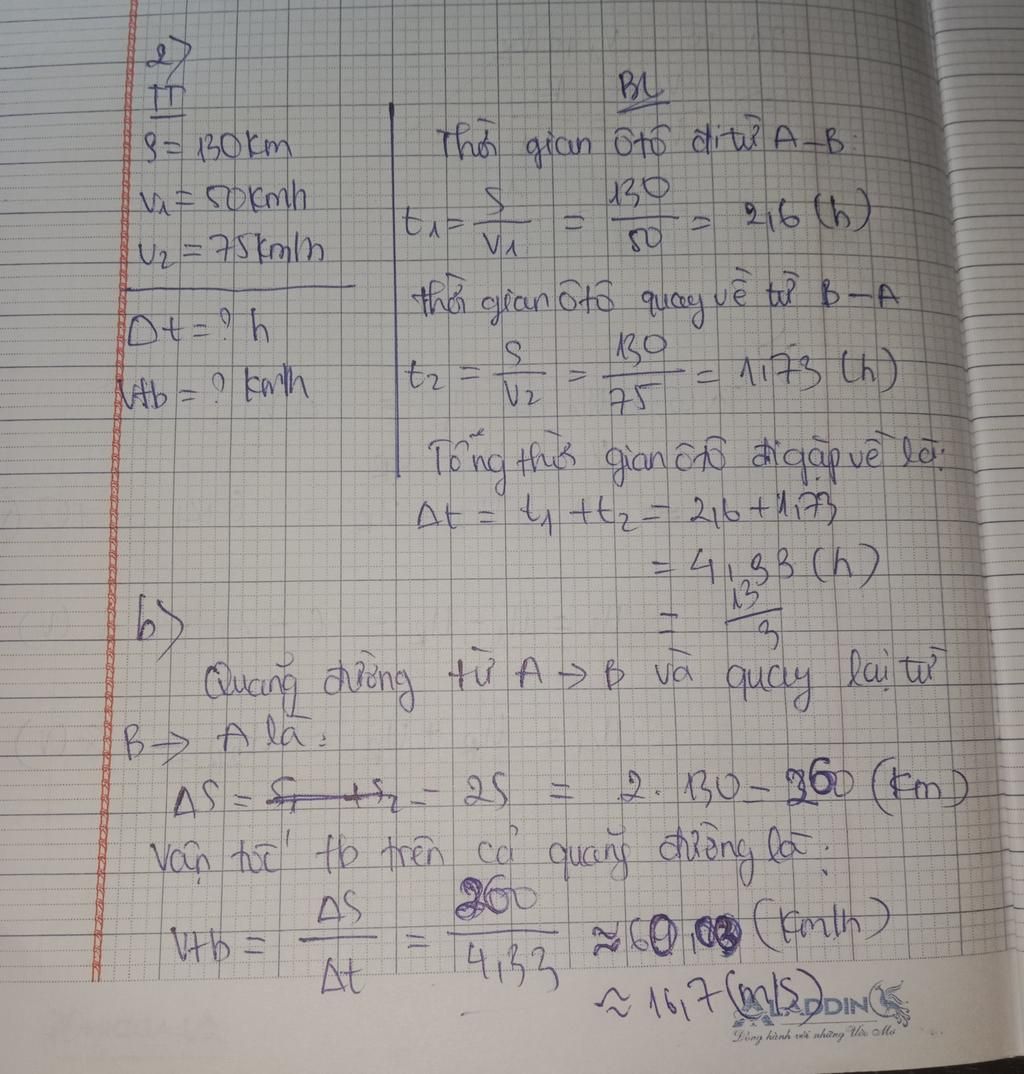 a)
TT
S = 130km
v1 = 50km/h
v2 = 75km/h
Δt = ? h
vtb = ? km/h
BL
Thời gian ôtô đi từ A-B:
t1 = S/v1 = 130/50 = 2,6 (h)
thời gian ôtô quay về từ B-A
t2 = S/v2 = 130/75 = 1,73 (h)
Tổng thời gian ôtô đi gặp về là:
Δt = t1 + t2 = 2,6 + 1,73
= 4,33 (h)
= 13/3
b)
Quãng đường từ A → B và quay lại từ
B → A là:
ΔS = S1 + S2 = 2S = 2. 130 = 260 (km)
vận tốc tb trên cả quãng đường là:
vtb = ΔS/Δt = 260/4,33 ≈ 60,03 (km/h)
≈ 16,7 (m/s)
ALADDIN
Đồng hành với những Ước Mơ